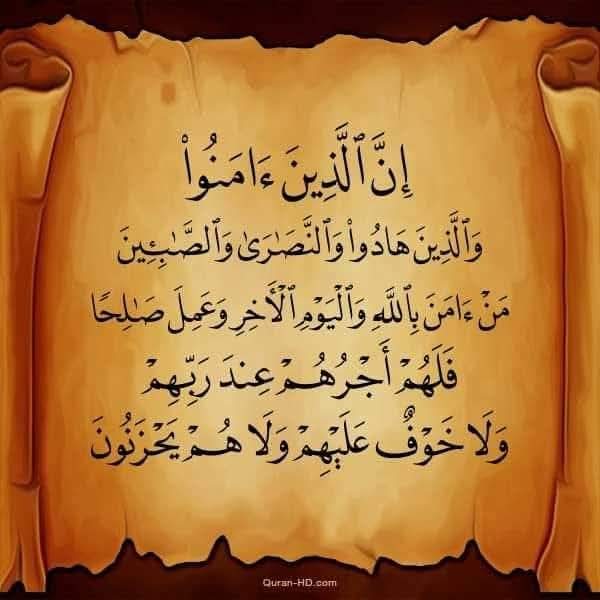 إِنَّ ٱلَّذِينَ ءَامَنُوا۟
وَٱلَّذِينَ هَادُوا۟ وَٱلنَّصَـٰرَىٰ وَٱلصَّـٰبِـِٔينَ
مَنْ ءَامَنَ بِٱللَّهِ وَٱلْيَوْمِ ٱلْأَخِرِ وَعَمِلَ صَـٰلِحًا
فَلَهُمْ أَجْرُهُمْ عِندَ رَبِّهِمْ
وَلَا خَوْفٌ عَلَيْهِمْ وَلَا هُمْ يَحْزَنُونَ
Quran-HD.com